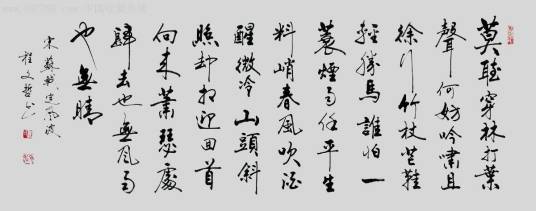 莫聽穿林打葉
聲何妨吟嘯且
徐行竹杖芒鞋
輕勝馬誰怕一
蓑煙雨任平生
料峭春風吹酒
醒微冷山頭斜
照却相迎回首
向來蕭瑟處
歸去也無風雨
也無晴
宋蘇軾定風波
程文哲书